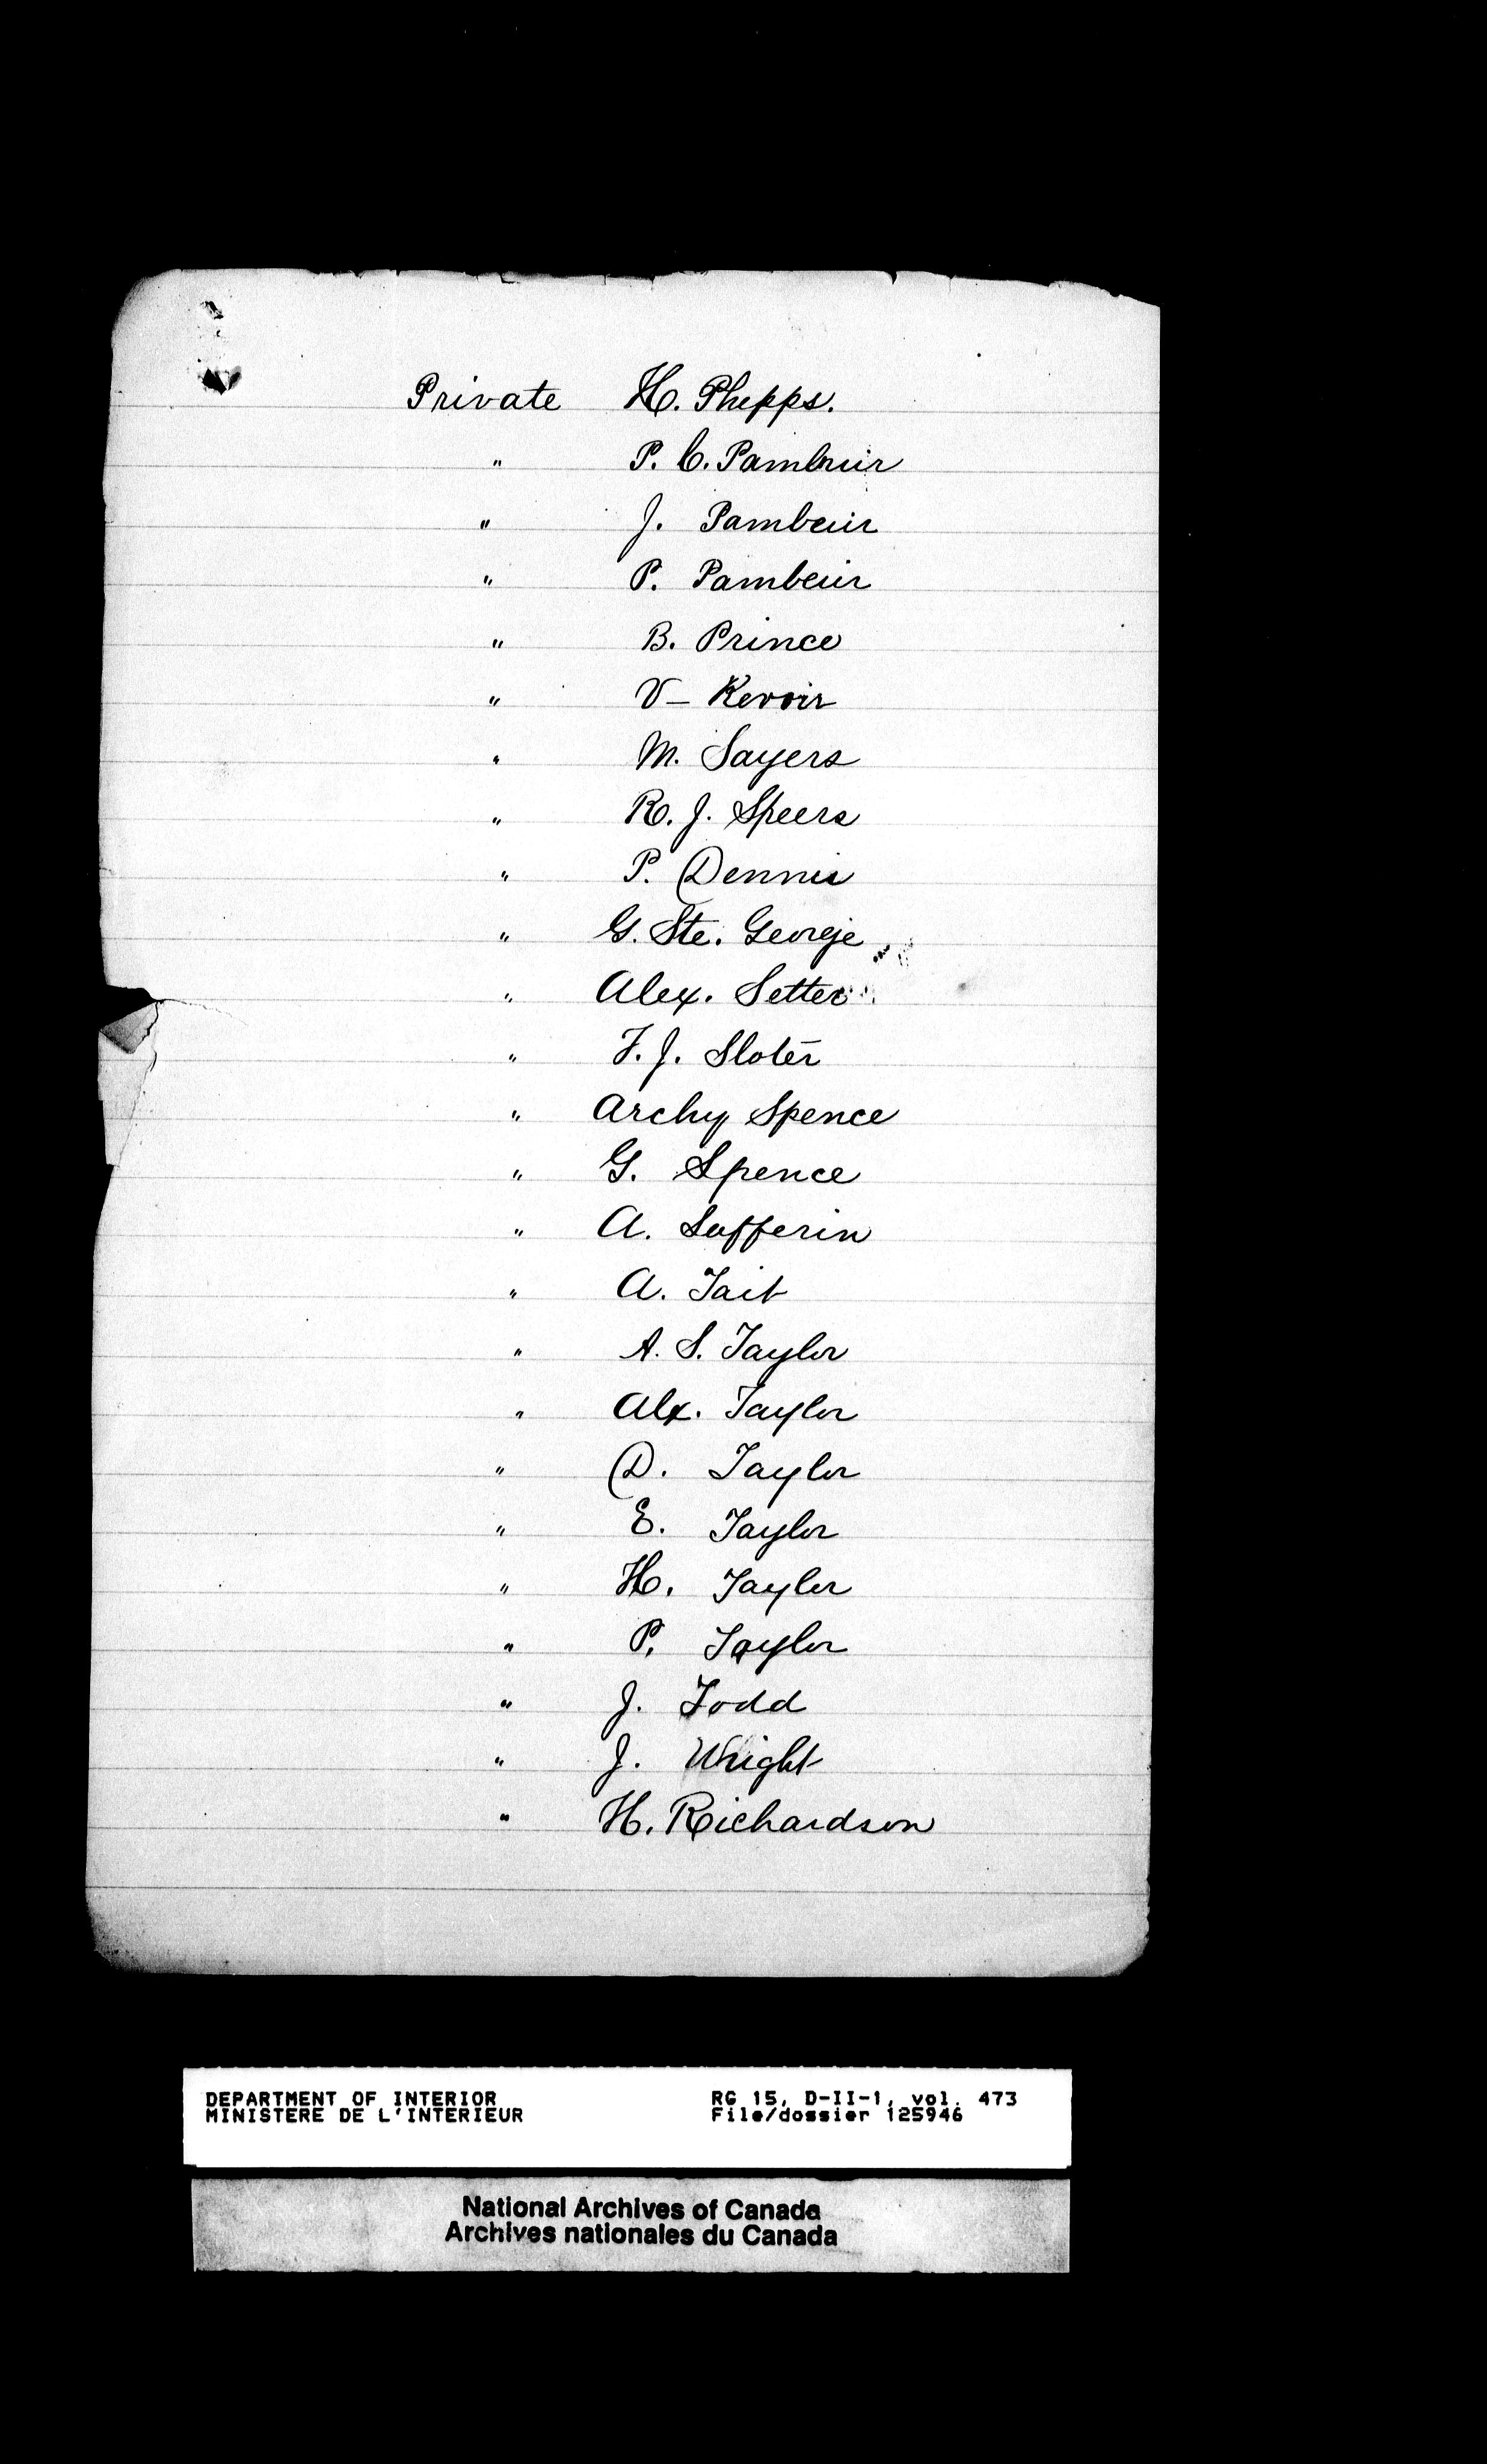 Private H. Phepps.
" P. C. Pambrur
" J. Pambrur
" P. Pambrur
" B. Prince
" V- Revoir
" M. Sayers
" R. J. Speers
" P. Dennis
" G. Ste. George
" Alex. Setter
" F. J. Sloter
" Archy Spence
" G. Spence
" A. Sufferin
" A. Tait
" A. S. Taylor
" Alx. Taylor
" D. Taylor
" E. Taylor
" H. Taylor
" P. Taylor
" J. Todd
" J. Wright
" H. Richardson
DEPARTMENT OF INTERIOR RG 15, D-II-1, vol. 473
MINISTERE DE L'INTERIEUR File/dossier 125946
National Archives of Canada
Archives nationales du Canada